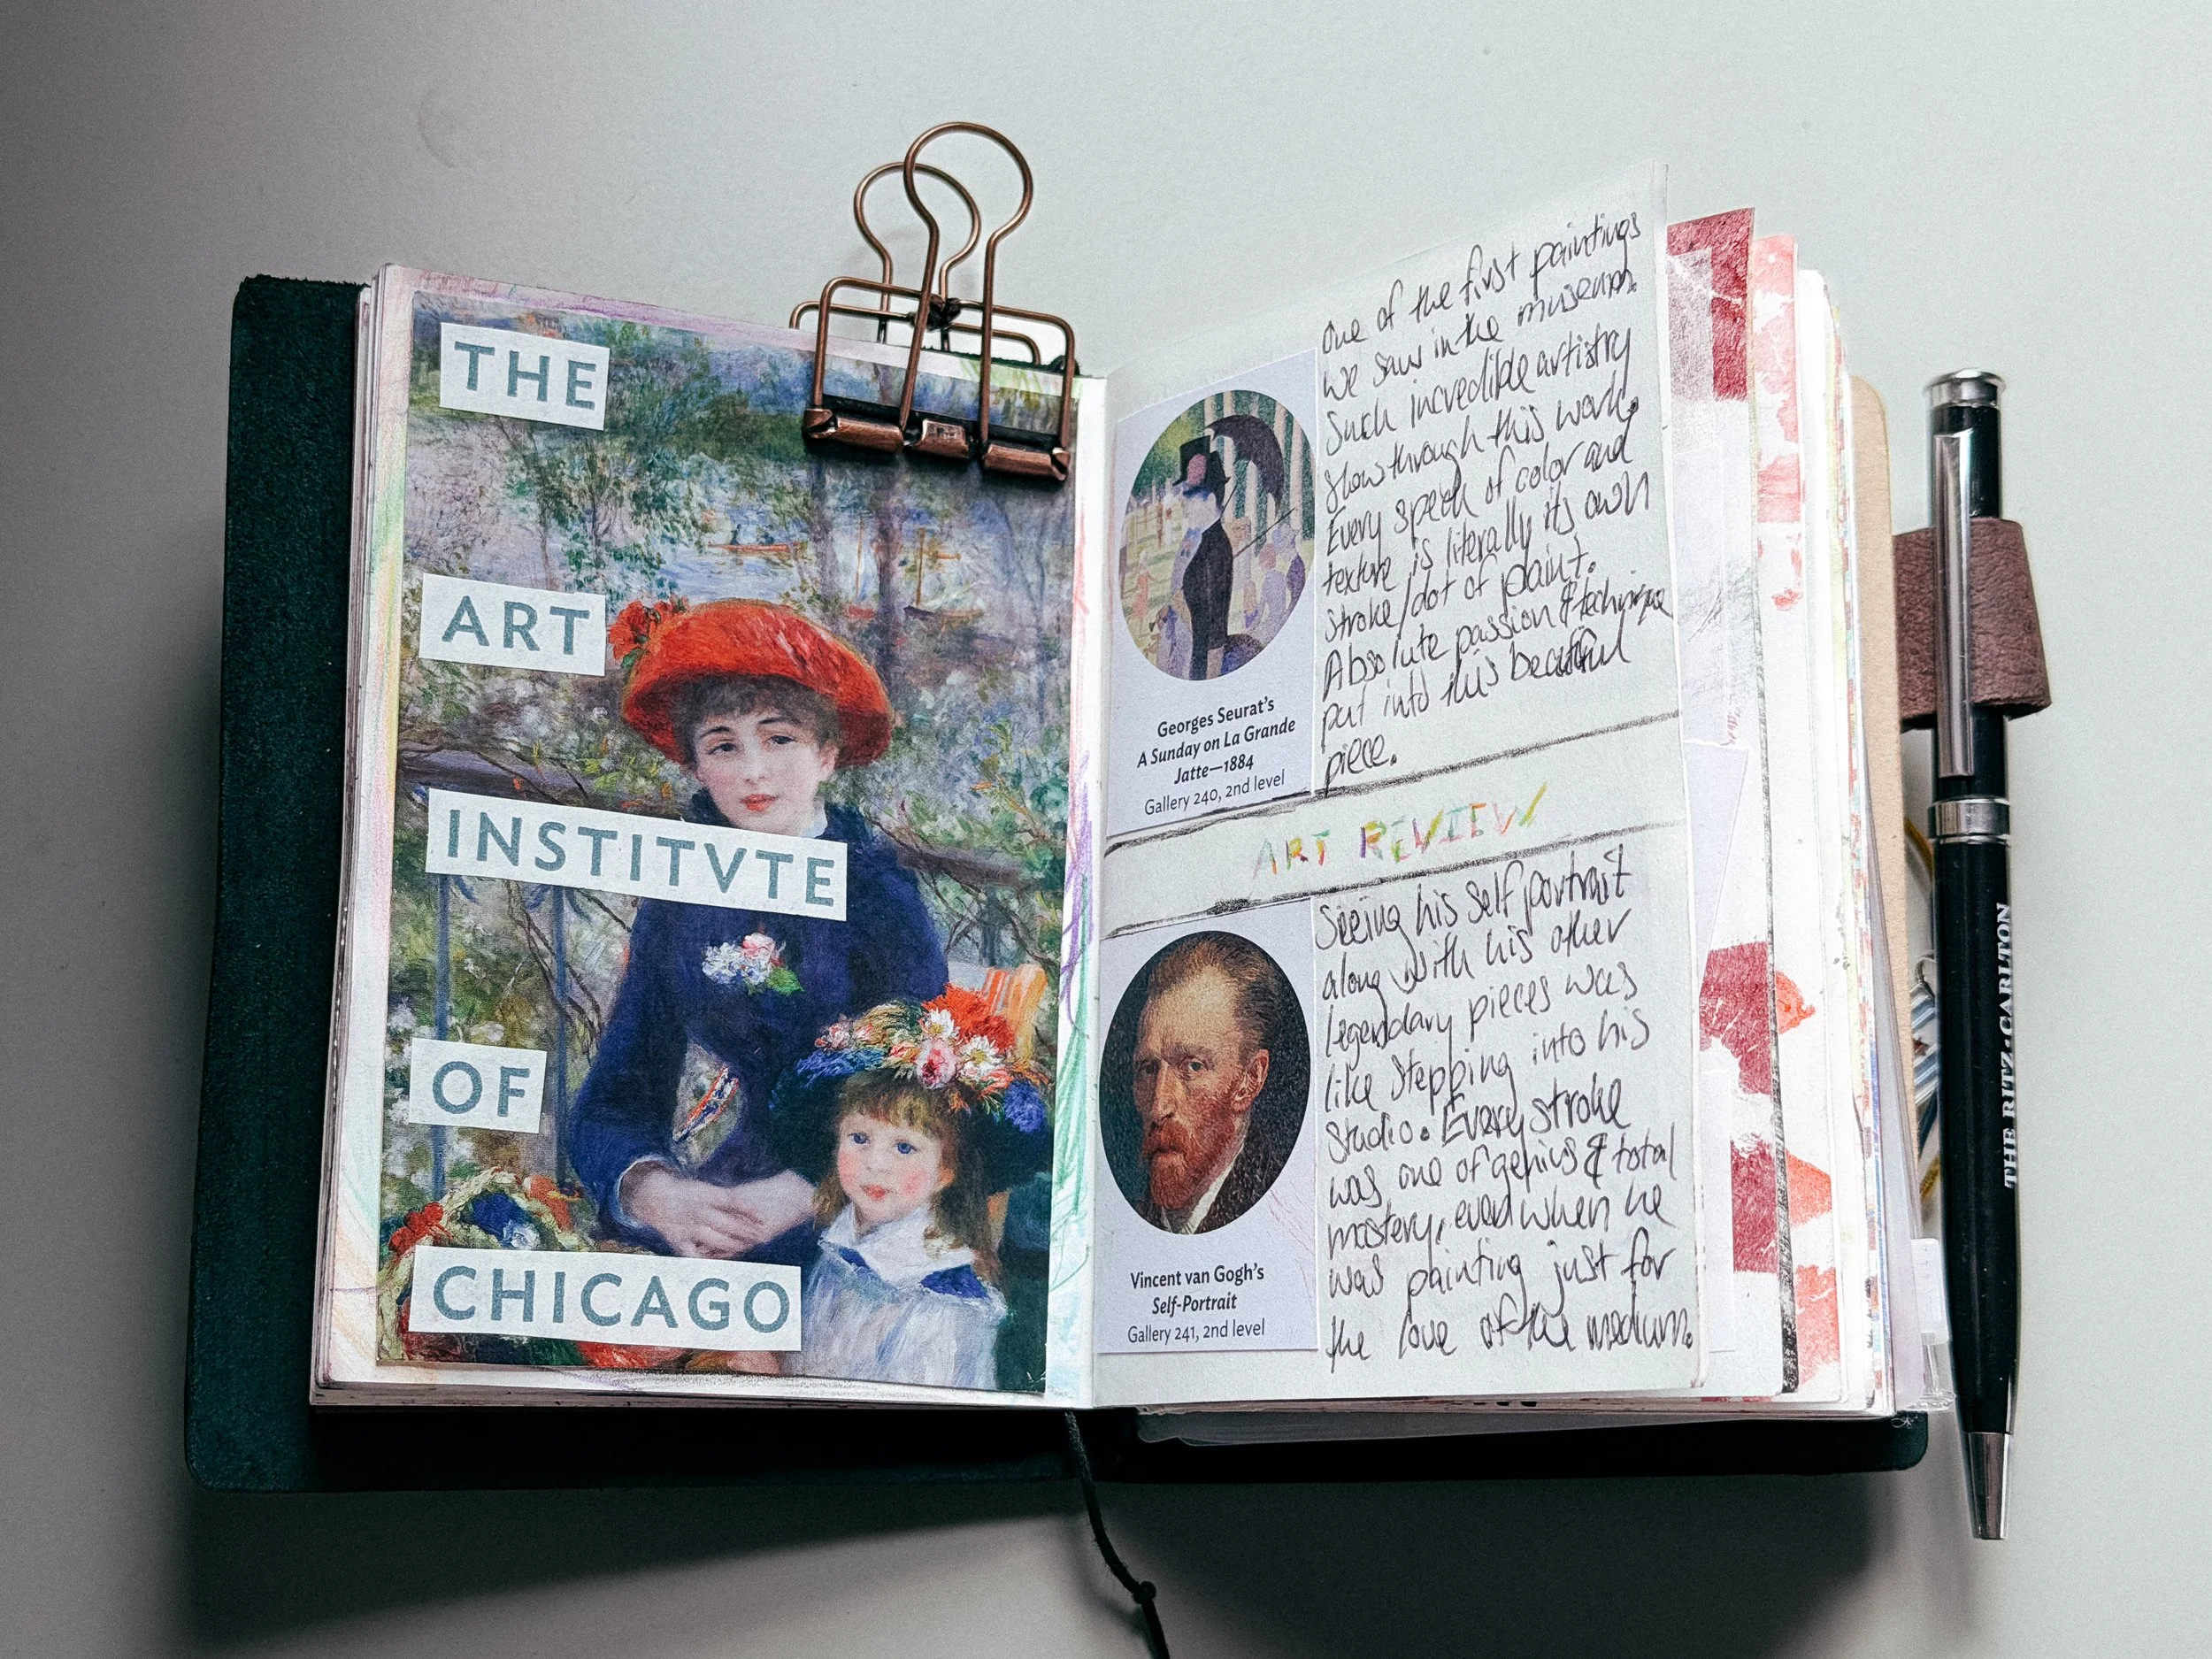 THE
ART
INSTITVTE
OF
CHICAGO
One of the first paintings
we saw in the museum.
Such incredible artistry
show through this work.
Every speck of color and
texture is literally its own
stroke/dot of paint.
Absolute passion & technique
put into this beautiful
piece.
Georges Seurat's
A Sunday on La Grande
Jatte—1884
Gallery 240, 2nd level
ART REVIEW
Seeing his self portrait
along with his other
legendary pieces was
like stepping into his
studio. Every stroke
was one of genius & total
mastery, even when he
was painting just for
the love of the medium.
Vincent van Gogh's
Self-Portrait
Gallery 241, 2nd level
THE RITZ-CARLTON